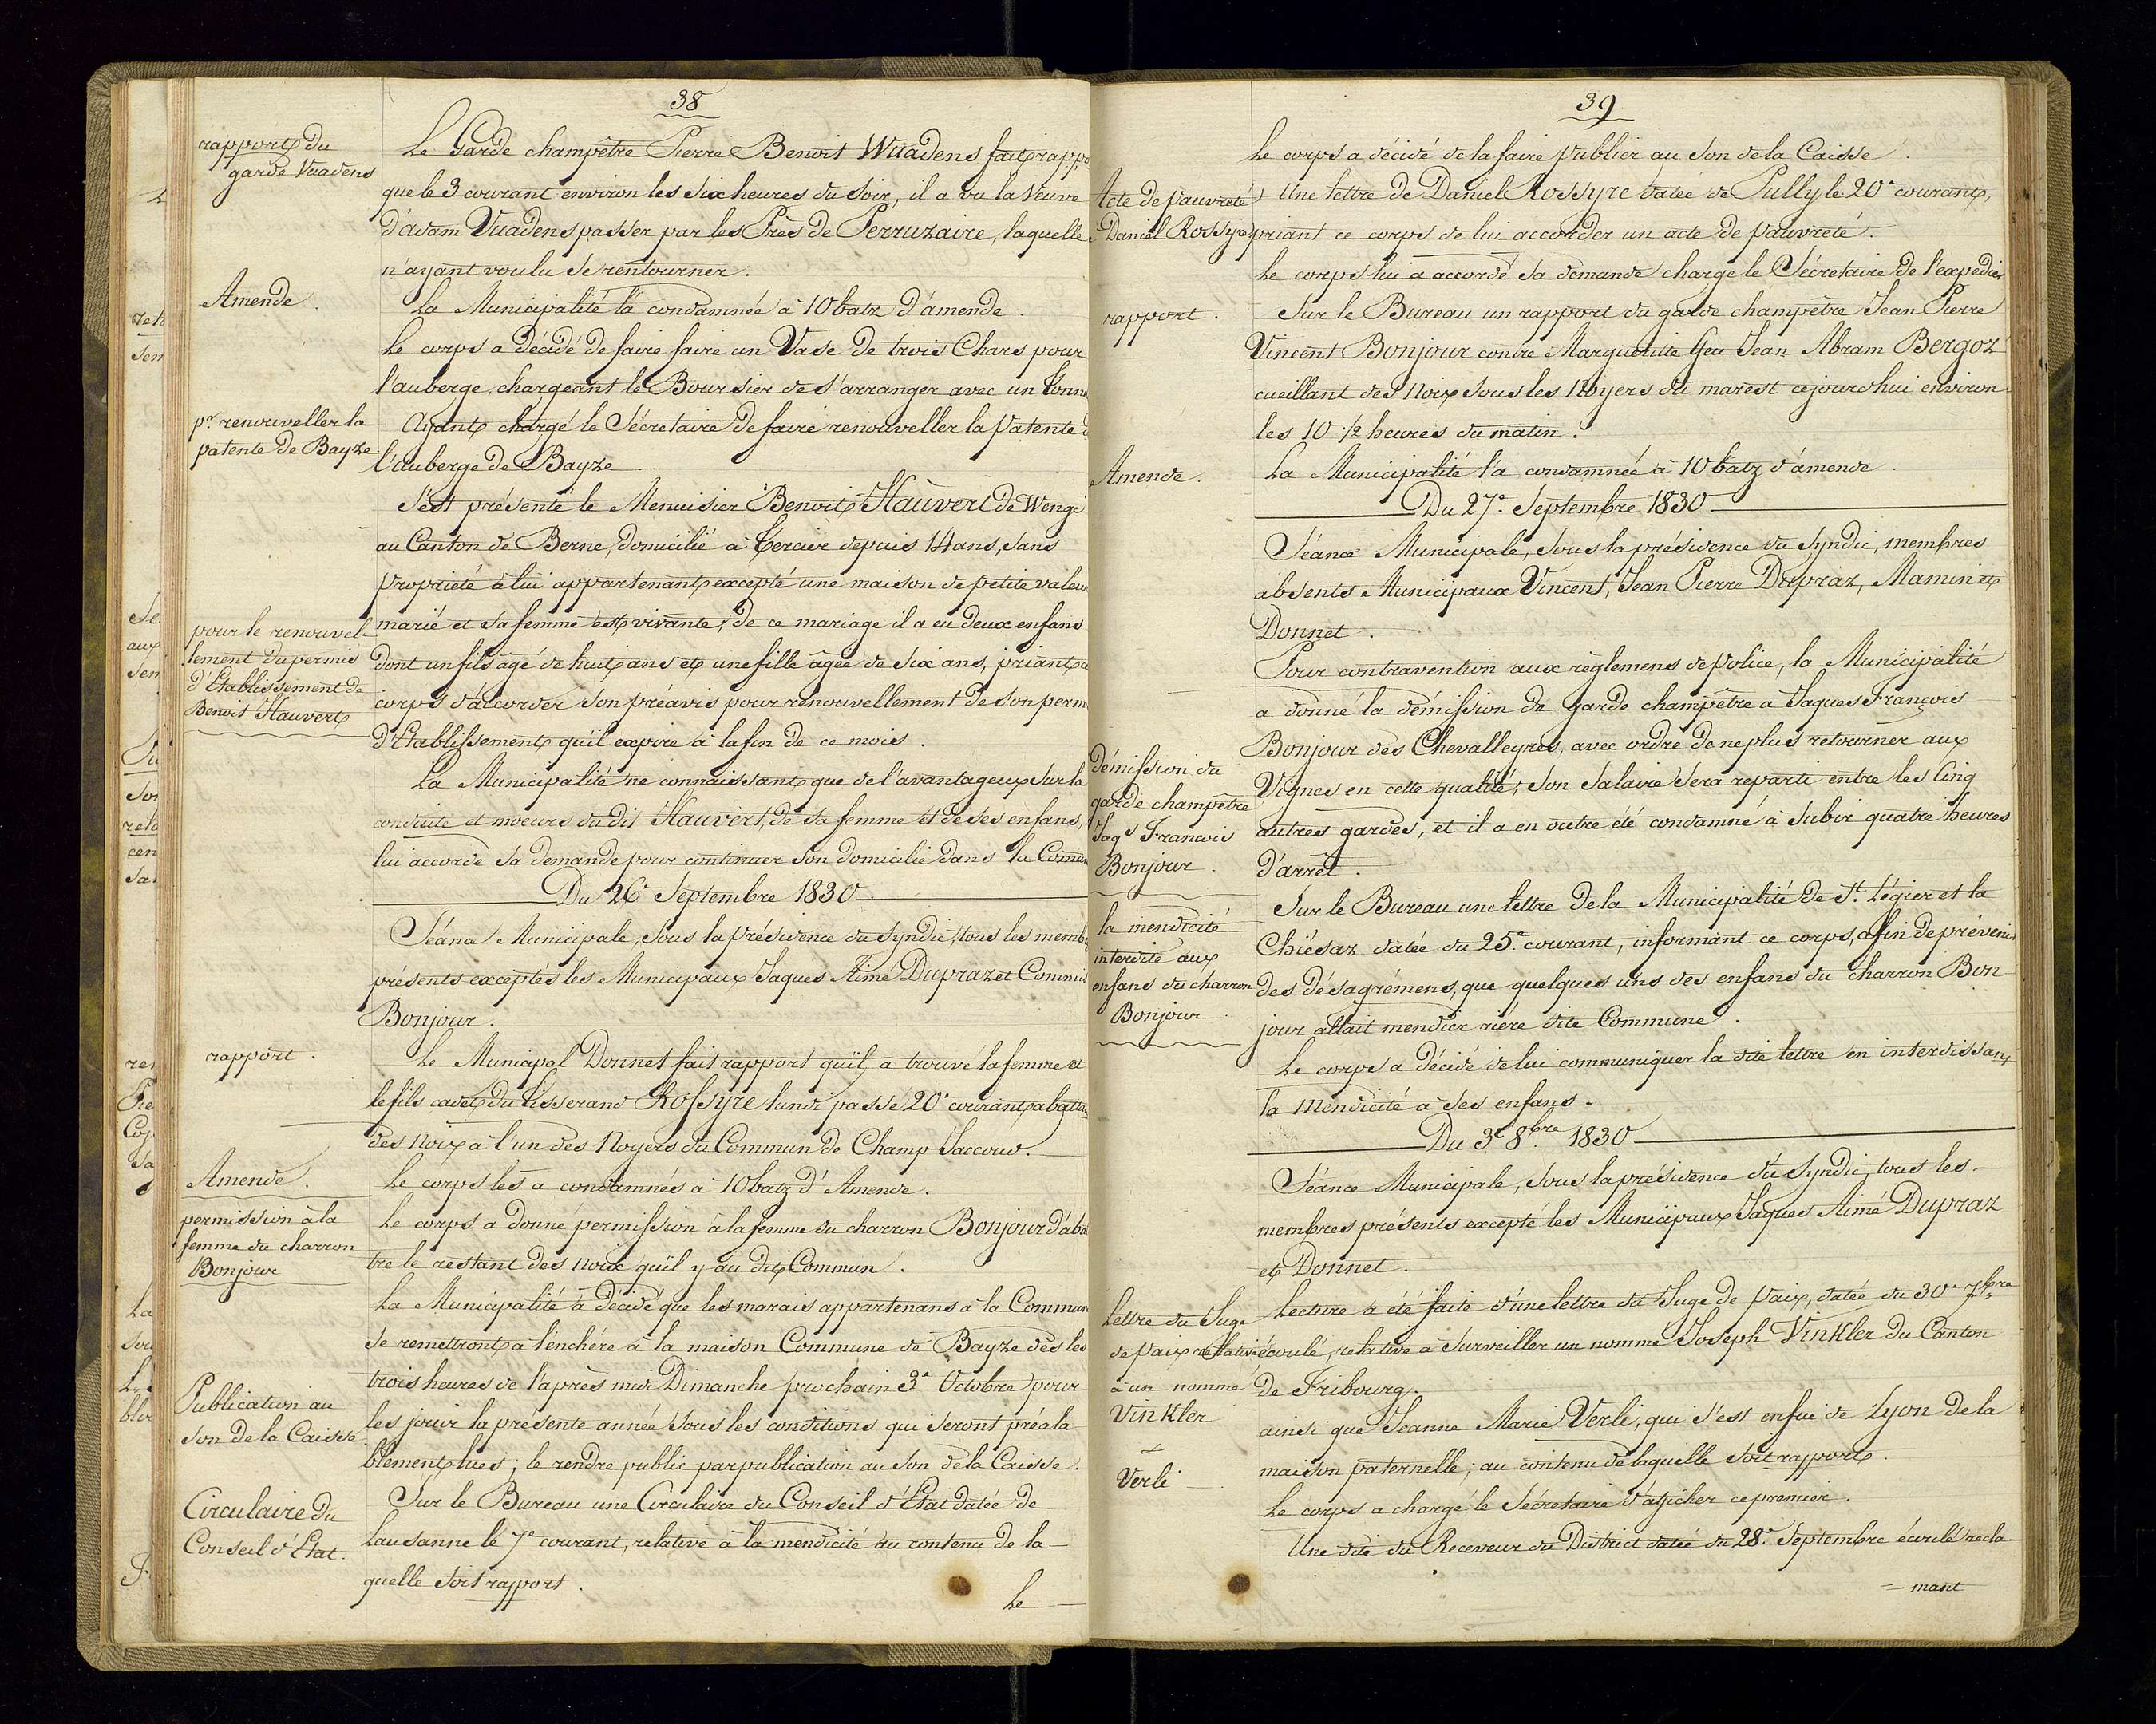 38
rapport du
garde Vuadens
Le Garde champêtre Pierre Benoit Wuadens fait rapp
que le 3 courant environ les six heures du soir, il a vu la veuve
d'adam Vuadens passer par les Près de Perruzaire, laquelle
n'ayant voulu se rentourner.
Amende.
La Municipalité l'à condamnée à 10 batz d'amende.
Le corps a décidé de faire faire un Vase de trois Chars pour
l'auberge, chargeant le Boursier de s'arranger avec un Tonne
pr. renouveller la
patente de Bayze
Ayant chargé le Sécretaire de faire renouveller la Patente d
l'auberge de Bayze
S'est présenté le Menuisier Benoit Hauvert de Wengi
au Canton de Berne, domicilié à Tercier depuis 14 ans, sans
propriété à lui appartenant excepté une maison de petite valeu
pour le renouvel-
lement du permis
d'Etablissement de
Benoit Hauvert
marié et sa femme est vivante; de ce mariage il a eu deux enfans
dont un fils âgé de huit ans et une fille âgée de six ans, priant ce
corps d'accorder son préavis pour renouvellement de son perm
d'Etablissement qu'il expire à la fin de ce mois.
La Municipalité ne connaissant que de l'avantageux sur la
conduite et moeurs du dit Hauvert, de sa femme et de ses enfans,
lui accorde sa demande pour continuer son domicilie dans la Comm
Du 26e Septembre 1830
Séance Municipale, sous la présidence du Syndic, tous les memb
présents exceptés les Municipaux Jaques Aimé Dupraz et Commis
Bonjour.
rapport.
Le Municipal Donnet fait rapport qu'il a trouvé la femme et
le fils cadet du tisserand Rossyre lundi passé 20e courant abatta
des Noix à l'un des Noyers du Commun de Champ Jaccoud.
Amende.
Le corps les a condamnés à 10 batz d'Amende.
permission à la
femme du charron
Bonjour
Le corps a donné permission à la femme du charron Bonjour d'aba
tre le restant des noix qu'il y au dit Commun.
La Municipalité a décidé que les marais appartenans à la Commun
se remettront à l'enchère à la maison Commune de Bayze dès les
Publication au
son de la Caisse
trois heures de l'après midi Dimanche prochain 3e Octobre pour
les jouir la presente année sous les conditions qui seront préala
blement lues; le rendre public par publication au son de la Caisse.
Circulaire du
Conseil d'Etat.
Sur le Bureau une Circulaire du Conseil d'Etat datée de
Lausanne le 7e courant, relative à la mendicité au contenu de la-
quelle soit rapport.
Le
39
Le corps a décidé de la faire publier au son de la Caisse.
Acte de pauvreté
Daniel Rossyre
Une lettre de Daniel Rossyre datée de Pully le 20e courant,
priant ce corps de lui accorder un acte de pauvreté.
Le corps lui a accordé sa demande charge le Sécretaire de l'expédier
rapport.
Sur le Bureau un rapport du garde champêtre Jean Pierre
Vincent Bonjour contre Marguerite feu Jean Abram Bergoz
cueillant des Noix sous les Noyers du marest cejourdhui environ
les 10 1/2 heures du matin.
Amende.
La Municipalité l'a condamnée à 10 batz d'amende.
Du 27e. Septembre 1830
Séance Municipale, sous la présidence du Syndic, membres
absents Municipaux Vincent, Jean Pierre Dupraz, Mamin et
Donnet.
Pour contravention aux règlemens de police, la Municipalité
a donné la démission de garde champêtre a Jaques François
démission du
garde champêtre
Jaqs François
Bonjour.
Bonjour des Chevalleyres, avec ordre de ne plus retourner aux
Vignes en cette qualité; son salaire sera reparti entre les Cinq
autres gardes, et il a en outre été condamné à subir quatre heures
d'arrêt.
la mendicité
interdite aux
enfans du charron
Bonjour.
Sur le Bureau une lettre de la Municipalité de St. Légier et la
Chiésaz datée du 25e. courant, informant ce corps, afin de prévenir
des désagrémens, que quelques uns des enfans du charron Bon
jour allait mendier riére dite Commune.
Le corps a décidé de lui communiquer la dite lettre en interdissant
la Mendicité à ses enfans.
Du 3e 8bre 1830
Séance Municipale, sous la présidence du Syndic, tous les
membres présents excepté les Municipaux Jaques Aimé Dupraz
et Donnet.
Lettre du Juge
de paix relative
à un nommé
Vinkler
Verli
Lecture a été faite d'une lettre du Juge de Paix, datée du 30e 7bre
écoulé, relative à surveiller un nommé Joseph Vinkler du Canton
de Fribourg.
ainsi que Jeanne Marie Verli, qui s'est enfui de Lyon de la
maison paternelle; au contenu de laquelle soit rapport.
Le corps a chargé le Sécretaire d'afficher ce premier.
Une dite du Receveur du District datée du 28e. Septembre écoulé récla
mant